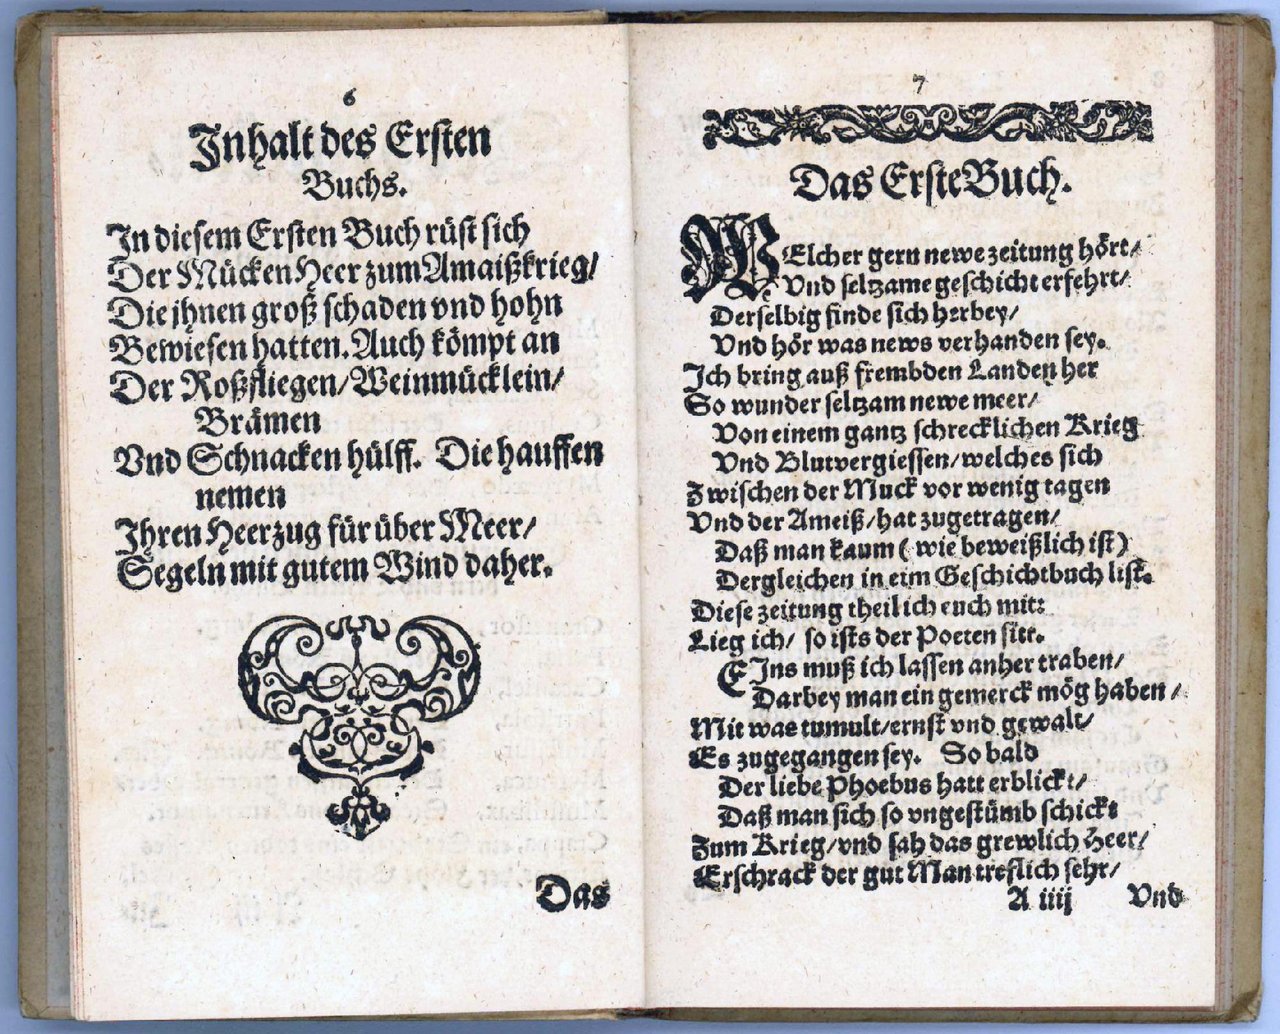 6
Inhalt des Ersten
Buchs.
In diesem Ersten Buch rüst sich
Der Mücken Heer zum Amaißkrieg/
Die jhnen groß schaden vnd hohn
Bewiesen hatten. Auch kömpt an
Der Roßfliegen/ Weinmücklein/
Brämen
Vnd Schnacken hülff. Die hauffen
nemen
Ihren Heerzug für über Meer/
Segeln mit gutem Wind daher.
Das
7
Das Erste Buch.
WElcher gern newe zeitung hört/
Vnd seltzame geschicht erfehrt/
Derselbig finde sich herbey/
Vnd hör was news verhanden sey.
Ich bring auß frembden Landen her
So wunder seltzam newe meer/
Von einem gantz schrecklichen Krieg
Vnd Blutvergiessen/ welches sich
Zwischen der Muck vor wenig tagen
Vnd der Ameiß/ hat zugetragen/
Daß man kaum ( wie beweißlich ist)
Dergleichen in eim Geschichtbuch list.
Diese zeitung theil ich euch mit:
Lieg ich/ so ists der Poeten sitt.
EIns muß ich lassen anher traben/
Darbey man ein gemerck mög haben/
Mit was tumult/ ernst vnd gewalt/
Es zugegangen sey. So bald
Der liebe Phoebus hatt erblickt/
Daß man sich so vngestümb schickt
Zum Krieg/ vnd sah das grewlich Heer/
Erschrack der gut Man treflich sehr/
A iiij Vnd